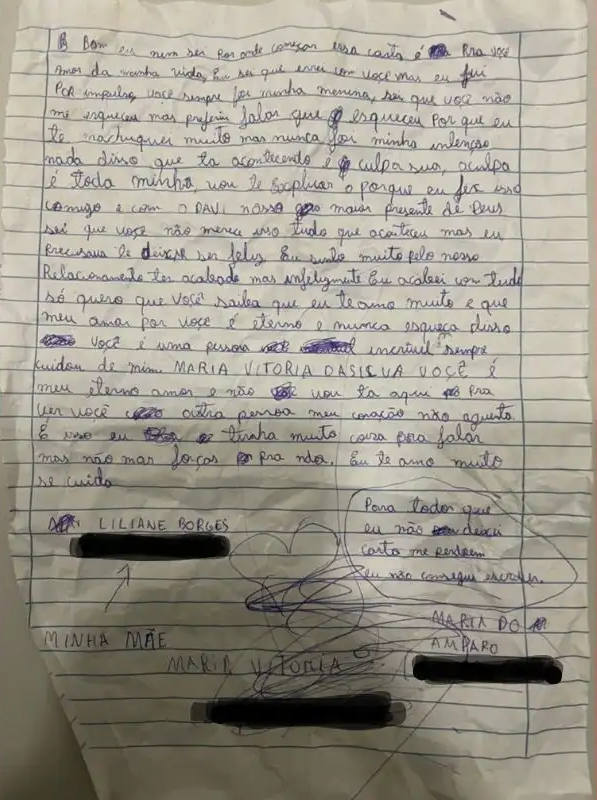 Bom eu nem sei por onde começar essa carta é pra você
Amor da minha vida, Eu sei que errei com você mas eu fui
POR impulso, você sempre foi minha menina, sei que você não
me esqueceu mas preferiu falar que esqueceu Por que eu
te machuquei muito mas nunca foi minha intenção
nada disso que ta acontecendo é culpa sua, aculpa
é toda minha, vou te Explicar o porque eu fez isso
comigo e com o DAVI nosso maior presente de Deus
sei que você não merece isso tudo que aconteceu mas eu
Precisava te deixar ser feliz. Eu sinto muito pelo nosso
Relacionamento ter acabado mas infelizmente Eu acabei com tudo
só quero que você saiba que eu te amo muito e que
meu amor por você é eterno e nunca esqueça disso
você é uma pessoa incrivel sempre
cuidou de mim MARIA VITORIA DASILVA VOCÊ É
meu eterno amor e não vou ta aqui pra
ver você outra pessoa meu coração não aguenta
É isso eu tinha muito coisa pra falar
mas não mas forças pra nda. Eu te amo muito
se cuida
Para todos que
eu não deixei
carta me perdoem
eu não consegui escrever.
LILIANE BORGES
MINHA MÃE
MARIA VITORIA
MARIA DO
AMPARO